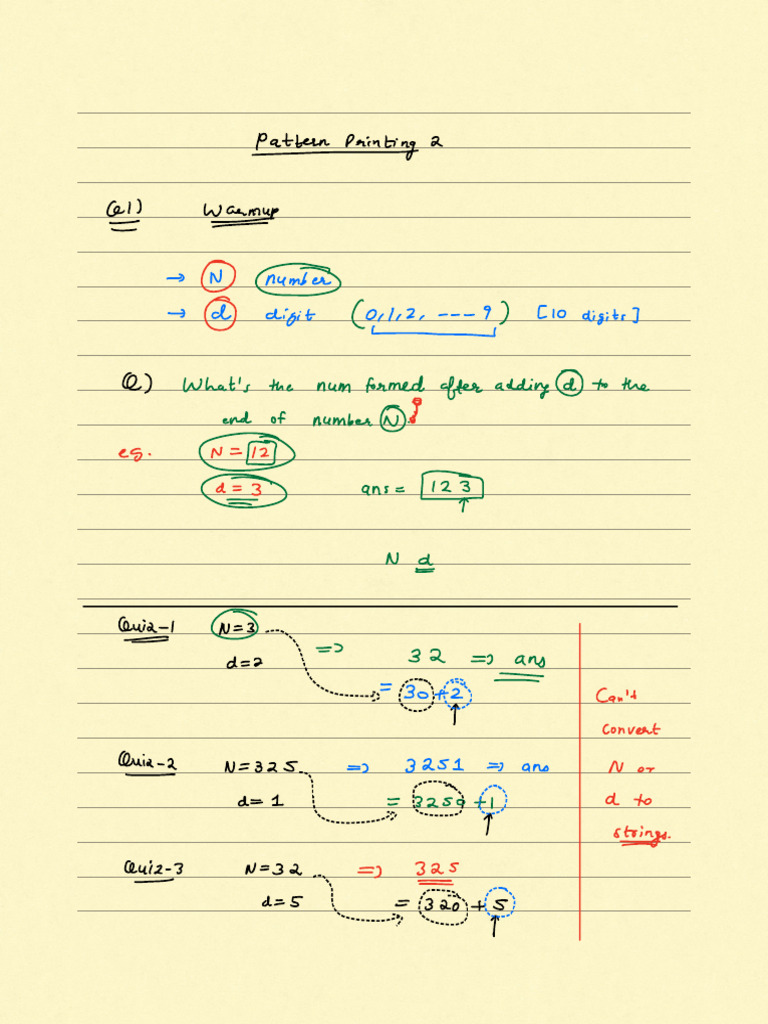 Pattern Printing 2
Q1) Warmup
→ N number
→ d digit (0,1,2, ---9) [10 digits]
Q) What's the num formed after adding d to the
end of number N.
eg. N = 12
d = 3 ans = 123
↑
N d
Quiz-1 N=3
⇒ 32 ⇒ ans
d=2
= 30+2
↑
Can't
convert
Quiz-2 N=325 ⇒ 3251 ⇒ ans
N or
d=1 = 3250+1
d to
↑
strings.
Quiz-3 N=32 ⇒ 325
d=5 = 320+5
↑